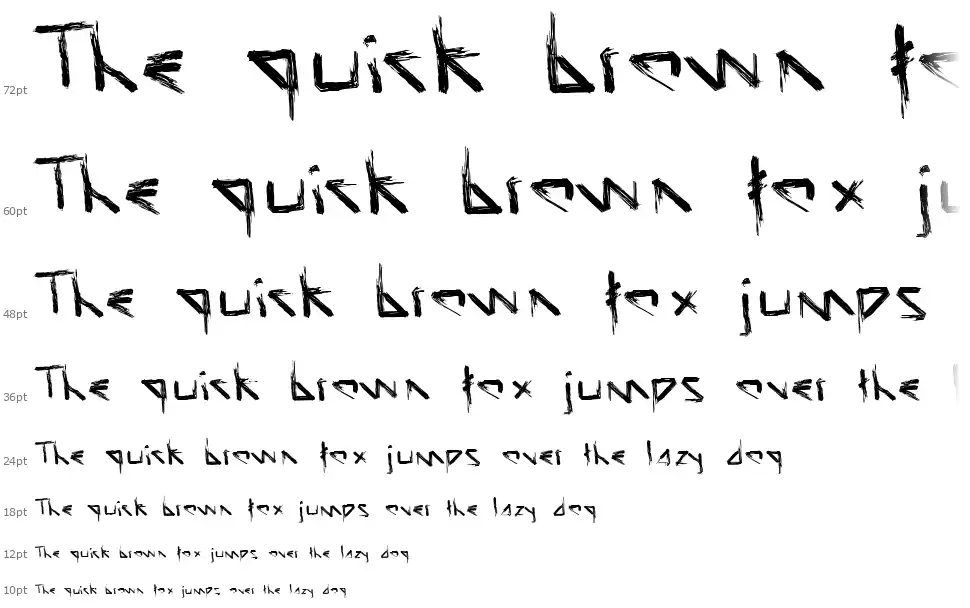 72pt The quick brown fo
60pt The quick brown fox ju
48pt The quick brown fox jumps
36pt The quick brown fox jumps over the
24pt The quick brown fox jumps over the lazy dog
18pt The quick brown fox jumps over the lazy dog
12pt The quick brown fox jumps over the lazy dog
10pt The quick brown fox jumps over the lazy dog